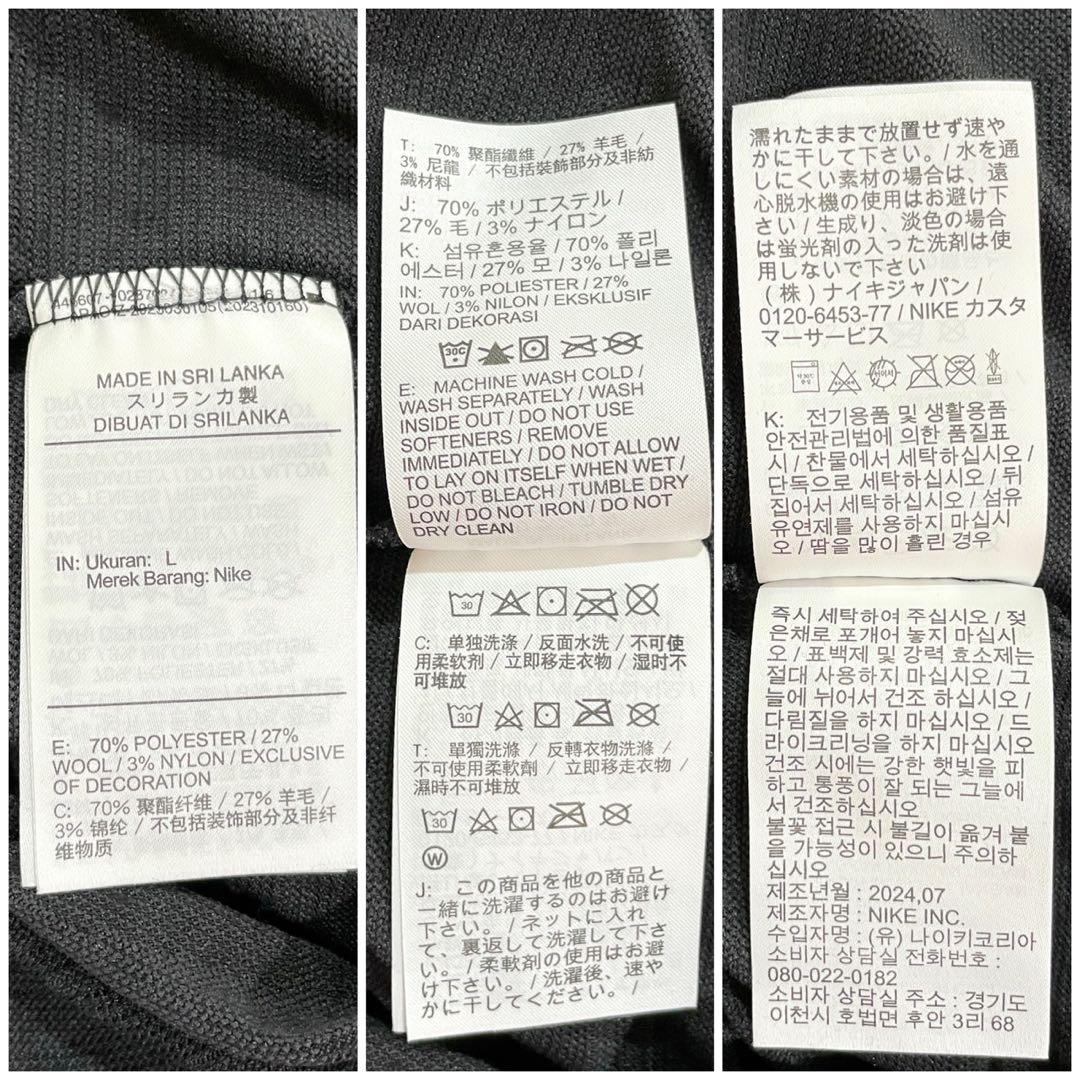 MADE IN SRI LANKA
スリランカ製
DIBUAT DI SRILANKA
IN: Ukuran: L
Merek Barang: Nike
E: 70% POLYESTER / 27%
WOOL / 3% NYLON / EXCLUSIVE
OF DECORATION
C: 70% 聚酯纤维 / 27% 羊毛 /
3% 锦纶 / 不包括装饰部分及非纤
维物质
T: 70% 聚酯纖維 / 27% 羊毛 /
3% 尼龍 / 不包括裝飾部分及非紡
織材料
J: 70% ポリエステル /
27% 毛 / 3% ナイロン
K: 섬유혼용율 / 70% 폴리
에스터 / 27% 모 / 3% 나일론
IN: 70% POLIESTER / 27%
WOL / 3% NILON / EKSKLUSIF
DARI DEKORASI
30C
E: MACHINE WASH COLD /
WASH SEPARATELY / WASH
INSIDE OUT / DO NOT USE
SOFTENERS / REMOVE
IMMEDIATELY / DO NOT ALLOW
TO LAY ON ITSELF WHEN WET /
DO NOT BLEACH / TUMBLE DRY
LOW / DO NOT IRON / DO NOT
DRY CLEAN
30
C: 单独洗涤 / 反面水洗 / 不可使
用柔软剂 / 立即移走衣物 / 湿时不
可堆放
30
T: 單獨洗滌 / 反轉衣物洗滌 /
不可使用柔軟劑 / 立即移走衣物 /
濕時不可堆放
30
W
J: この商品を他の商品と
一緒に洗濯するのはお避け
下さい。/ ネットに入れ
て、裏返して洗濯して下さ
い。/ 柔軟剤の使用はお避
け下さい。/ 洗濯後、速や
かに干してください。/
濡れたままで放置せず速や
かに干して下さい。/ 水を通
しにくい素材の場合は、遠
心脱水機の使用はお避け下
さい / 生成り、淡色の場合
は蛍光剤の入った洗剤は使
用しないで下さい
(株) ナイキジャパン /
0120-6453-77 / NIKE カスタ
マーサービス
K: 전기용품 및 생활용품
안전관리법에 의한 품질표
시 / 찬물에서 세탁하십시오 /
단독으로 세탁하십시오 / 뒤
집어서 세탁하십시오 / 섬유
유연제를 사용하지 마십시
오 / 땀을 많이 흘린 경우
즉시 세탁하여 주십시오 / 젖
은채로 포개어 놓지 마십시
오 / 표백제 및 강력 효소제는
절대 사용하지 마십시오 / 그
늘에 뉘어서 건조 하십시오 /
다림질을 하지 마십시오 / 드
라이크리닝을 하지 마십시오
건조 시에는 강한 햇빛을 피
하고 통풍이 잘 되는 그늘에
서 건조하십시오
불꽃 접근 시 불길이 옮겨 붙
을 가능성이 있으니 주의하
십시오
제조년월 : 2024,07
제조자명 : NIKE INC.
수입자명 : (유) 나이키코리아
소비자 상담실 전화번호 :
080-022-0182
소비자 상담실 주소 : 경기도
이천시 호법면 후안 3리 68